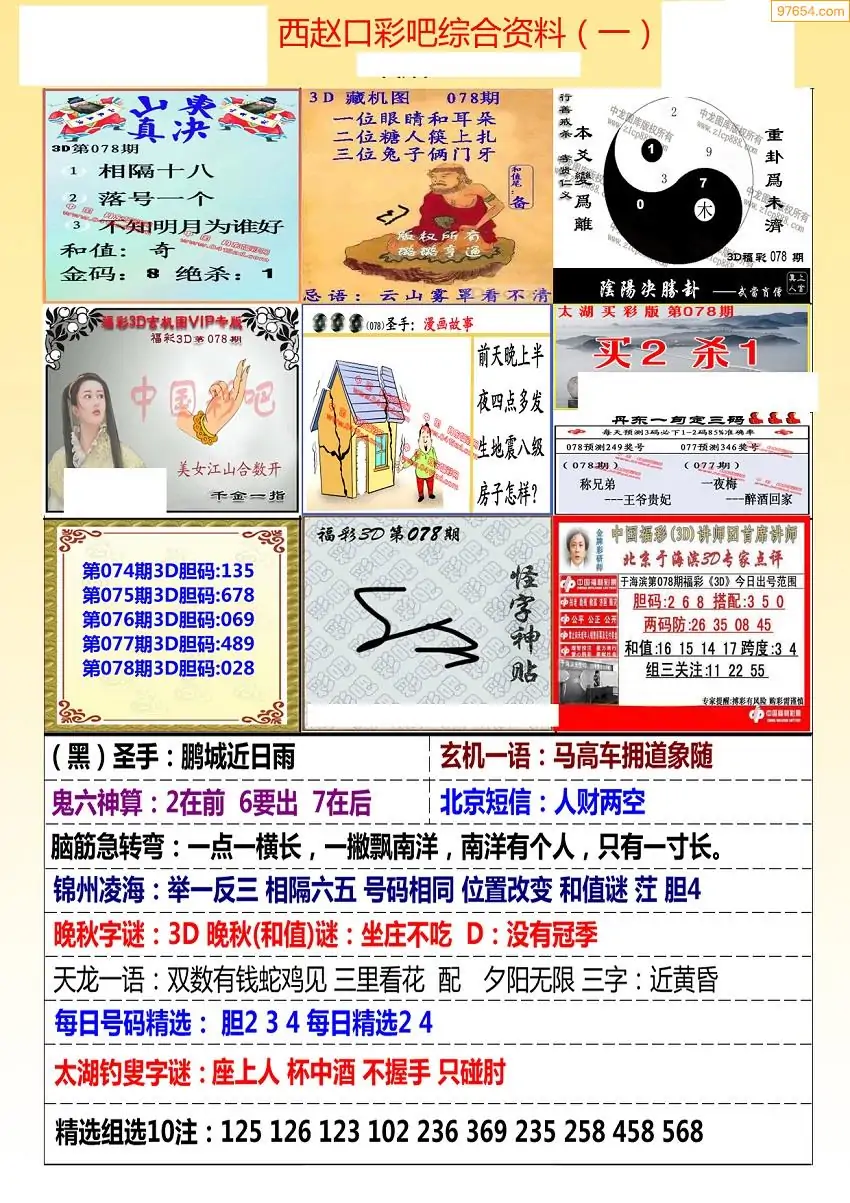 97654.com
西赵口彩吧综合资料（一）
真决
3D第078期
1 相隔十八
2 落号一个
3 不知明月为谁好
和值： 奇
金码：8 绝杀：1
3D 藏机图 078期
一位眼睛和耳朵
二位糖人筷上扎
三位兔子俩门牙
和值尾：
备
版权所有
忌语：云山雾罩看不清
行善戒杀
本爻變爲離
重卦爲未濟
中龙图库版权所有
www.zlcp888.com
2
1
9
3
7
0
木
3D福彩 078 期
陰陽決勝卦 ——武當肖僧
福彩3D玄机图VIP专版
福彩3D第078期
中国彩吧
美女江山合数开
千金一指
(078)圣手：漫画故事
前天晚上半
夜四点多发
生地震八级
房子怎样?
太湖买彩版 第078期
买2 杀1
丹东一句定三码
每天预测3码必下1-2码85%准确率
078预测249奖号 077预测346奖号
(078期) (077期)
称兄弟 一夜梅
---王爷贵妃 ---醉酒回家
第074期3D胆码:135
第075期3D胆码:678
第076期3D胆码:069
第077期3D胆码:489
第078期3D胆码:028
福彩3D第078期
怪字神贴
金牌彩研师
中国福彩(3D)讲师团首席讲师
北京于海滨3D专家点评
中国福利彩票
于海滨第078期福彩《3D》今日出号范围
胆码:2 6 8 搭配:3 5 0
两码防:26 35 08 45
和值:16 15 14 17 跨度:3 4
组三关注:11 22 55
公平 公正 公开
专家提醒:搏彩有风险 购彩需谨慎
中国福利彩票
（黑）圣手：鹏城近日雨
玄机一语：马高车拥道象随
鬼六神算：2在前 6要出 7在后
北京短信：人财两空
脑筋急转弯：一点一横长，一撇飘南洋，南洋有个人，只有一寸长。
锦州凌海：举一反三 相隔六五 号码相同 位置改变 和值谜 茳 胆4
晚秋字谜：3D 晚秋(和值)谜：坐庄不吃 D：没有冠季
天龙一语：双数有钱蛇鸡见 三里看花 配 夕阳无限 三字：近黄昏
每日号码精选： 胆2 3 4 每日精选2 4
太湖钓叟字谜：座上人 杯中酒 不握手 只碰肘
精选组选10注：125 126 123 102 236 369 235 258 458 568